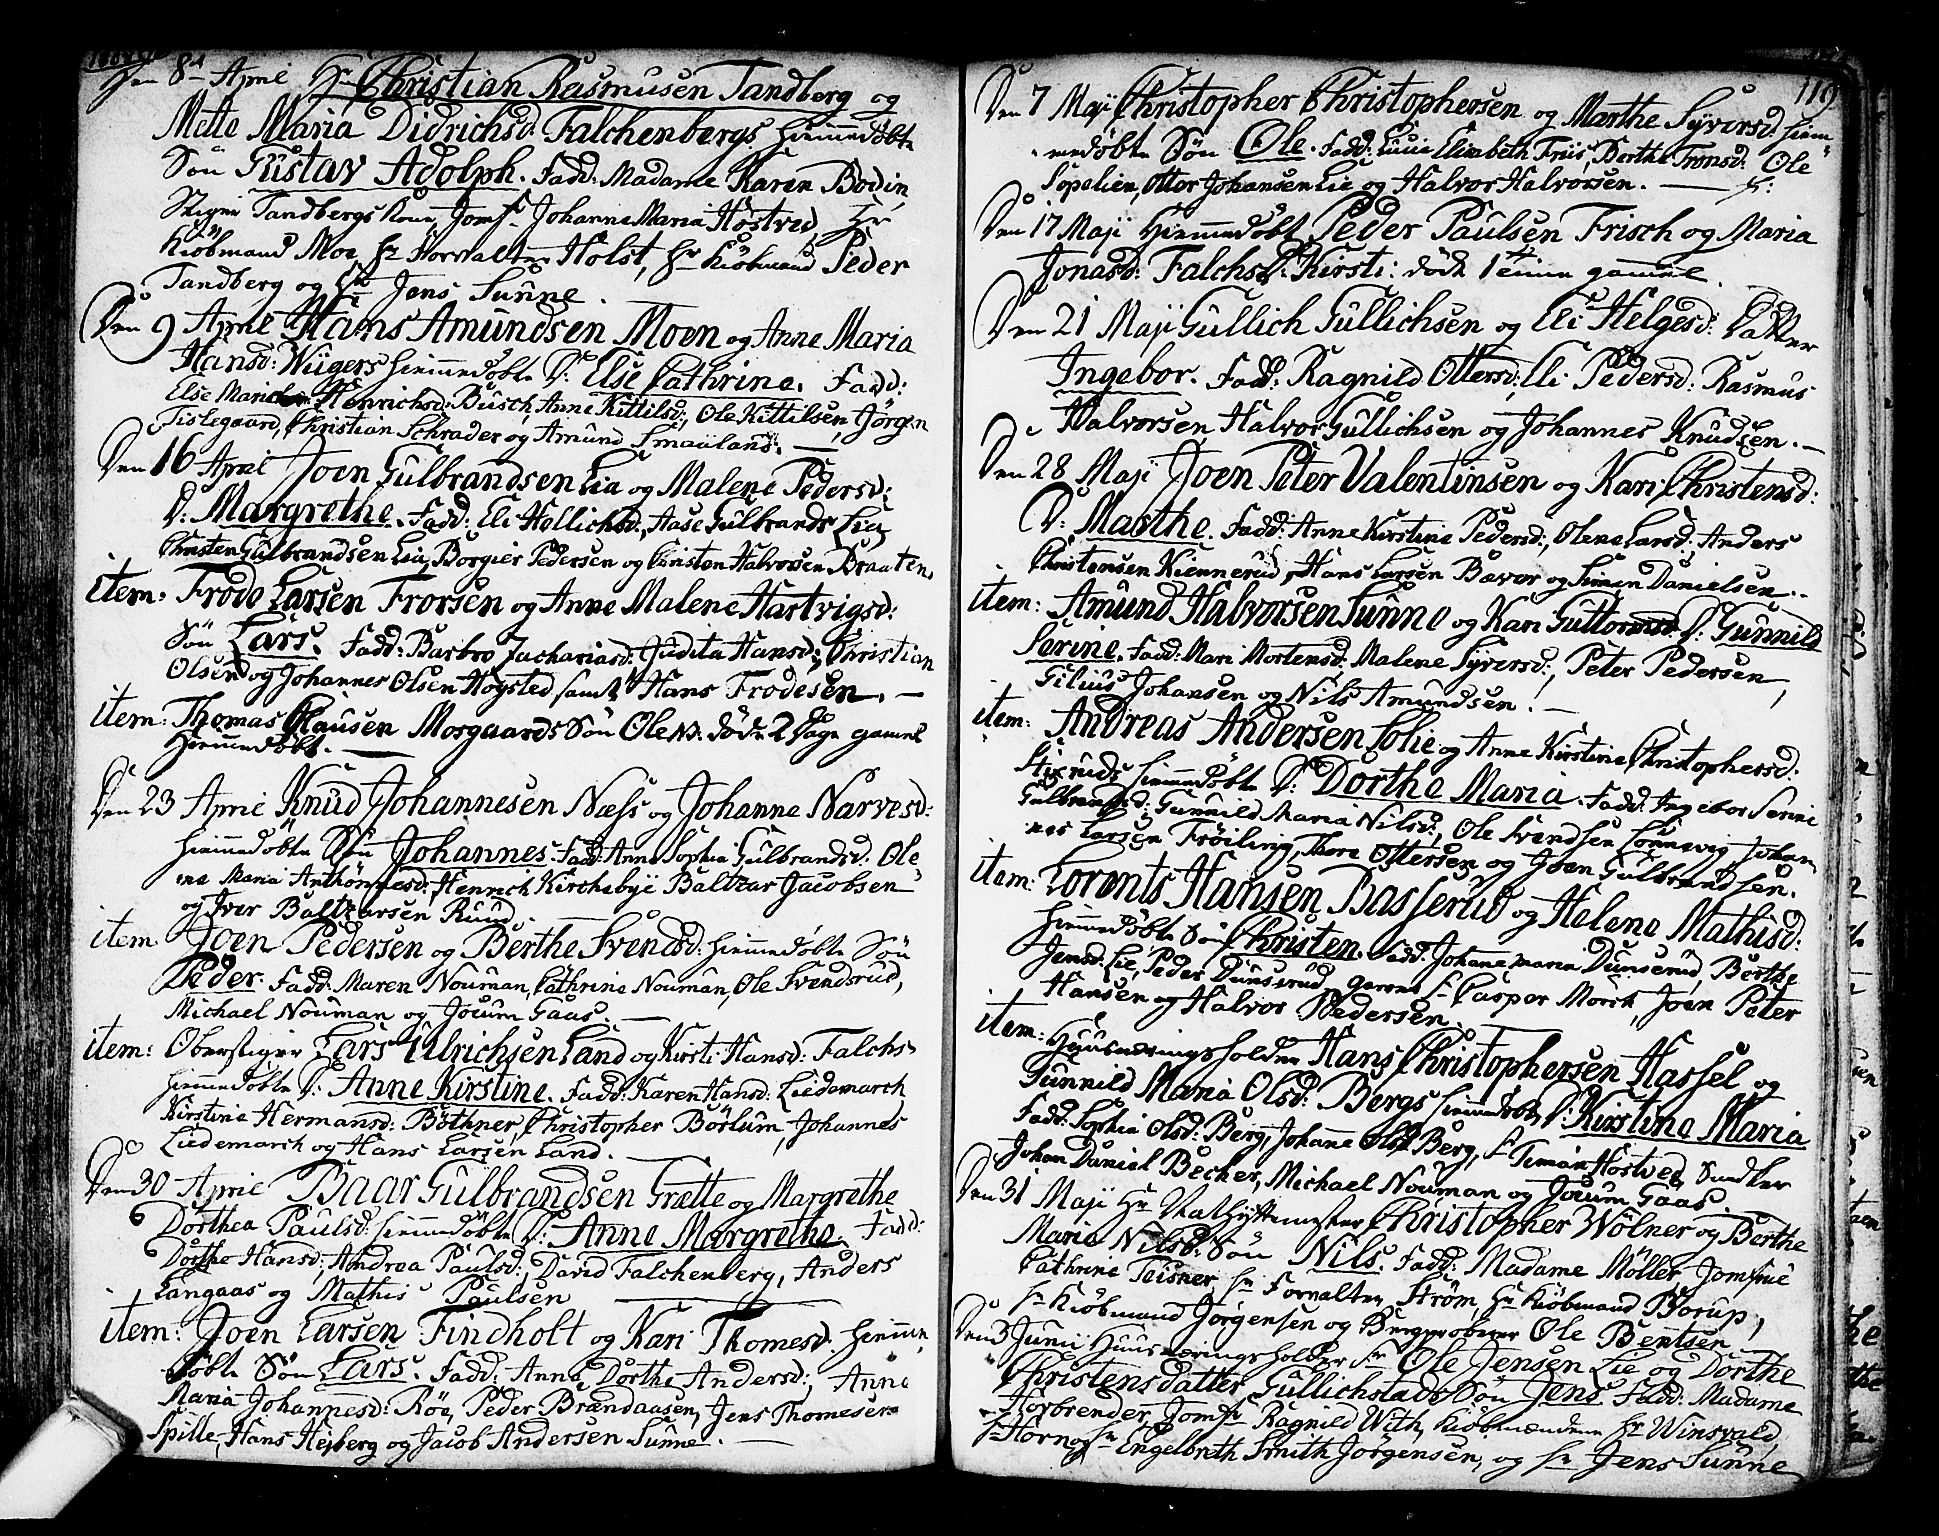 Den 8de April Hr Christian Rasmusen Tandberg og
Mette Maria Didrichsd: Falchenbergs hiemmedøbte
Søn Gustav Adolph. Fadd: Madame Karen Bodin
Stiger Tandbergs Kone, Jomfr Johanne Maria Høstved, Hr
Kiøbmand Moe, Hr Forvalter Holst, Hr Kiøbmand Peder
Tandberg og Jens Sunne.
Den 9 April Hans Amundsen Moen og Anne Maria
Hansd: Wiigers hiemmedøbte D: Else Cathrine. Fadd:
Else Marie Henrichsd: Busch, Anne Kittilsd:, Ole Kittilsen, Jørgen
Tislegaard, Christian Schrader og Amund Smaaland.
Den 16 April Joen Gulbrandsen Lia og Malene Pedersd:
D: Margrethe. Fadd: Eli Hellichsd:, Aase Gulbrands Lia,
Christen Gulbrandsen Lia, Borgier Pedersen og Christen Halvorsen Braaten.
item: Frode Larsen Frorsen og Anne Malene Hartvigsd:
Søn Lars. Fadd: Barbro Zachariasd: Judita Hansd:, Christian
Olsen og Johannes Olsen Høgsted samt Hans Frodesen. —
item: Thomas Clausen Morgaards Søn Ole NB: døde 2 Dage gammel
Hiemmedøbt. —
Den 23 April Knud Johannesen Næss og Johanne Narvesd:
hiemmedøbte Søn Johannes. Fadd: Anne Sophia Gulbrandsd: Ole
ne Maria Anthonnesd: Henrich Kirchebye Baltzar Jacobsen
og Iver Baltzarsen Ruud. —
item Joen Pedersen og Berthe Svendsd: hiemmedøbte Søn
Peder. Fadd: Maren Nouman, Cathrine Nouman, Ole Svendsrud,
Michael Nouman og Jocum Gaas. —
item: Oberstiger Lars Ulrichsen Land og Kirsti Hansd: Falchs
hiemmedøbte D: Anne Kirstine. Fadd: Karen Hansd: Liedemarch
Kirstine Hermansd: Bøthner, Christopher Børlum, Johannes
Liedemarch og Hans Larsen Land.
Den 30 April Baar Gulbrandsen Grætte og Margrethe
Dorthea Paulsd: hiemmedøbte D: Anne Margrethe. Fadd:
Dorthe Hansd:, Andrea Paulsd:, David Falchenberg, Anders
Langaas og Mathis Paulsen
item: Joen Larsen Findholt og Kari Thomesd: hiemme
døbte Søn Lars. Fadd: Anne Dorthe Andersd:, Anne
Maria Johannesd: Røe, Peder Brandaasen, Jens Thomesen
Spille, Hans Hejberg og Jacob Andersen Sunne. —
119
Den 7 Maji Christopher Christophersen og Marthe Syversd: hiem
medøbte Søn Ole. Fadd: Lucie Elisabeth Friis, Berthe Tronsd: Ole
Sopelien, Otter Johansen Lie og Halvor Halvorsen. —
Den 17 Maji Hiemmedøbt Peder Paulsen Frisch og Maria
Jonasd: Falchs D: Kirsti: døde 1 time gammel.
Den 21 Maji Gullich Gullichsen og Eli Helgesd: Datter
Ingebor. Fadd: Ragnild Ottersd:, Eli Pedersd: Rasmus
Halvorsen Halvor Gullichsen og Johannes Knudsen. —
Den 28 Maji Joen Peter Valentinsen og Kari Christensd:
D: Marthe. Fadd: Anne Kirstine Pedersd:, Olene Larsd:, Anders
Christensen Kiennerud, Hans Larsen Bæver og Simen Danielsen. —
item: Amund Halvorsen Sunne og Kari Guttormsd: D: Gunnild
Serine. Fadd: Mari Mortensd: Malene Syversd:, Peter Pedersen,
Gilius Johansen og Nils Amundsen. —
item: Andreas Andersen Lolie og Anne Kirstine Christophersd:
Stixruds hiemmedøbte D: Dorthe Maria. Fadd: Ingebor Serine
Gulbrandsd: Gunnild Maria Nilsd:, Ole Svendsen Lønnevig, Johan
nes Larsen Frøiling, Thore Ottersen og Joen Gulbrandsen.
item: Lorents Hansen Basserud og Helene Mathisd:
hiemmedøbte Søn Christen. Fadd: Johane Maria Dunserud, Berthe
Jensd: Lie, Peder Dunserud, Caspar Morch, Joen Peter
Hansen og Halvor Pedersen.
item: Huusnæringsholder Hans Christophersen Hassel og
Gunnild Maria Olsd: Bergs hiemmedøbte D: Kirstine Maria
Fadd: Sophia Olsd: Berg, Johanne Olsd Berg, Sr Timan Høstved, Sundler
Johan Daniel Becker, Michael Nouman og Jocum Gaas.
Den 31 Maji Hr Christopher Wølner og Berthe
Maria Nilsd: Søn Nils. Fadd: Madame Møller, Jomfrue
Cathrine Teisner, Hr Forvalter Strøm, Hr Kiøbmand Borup,
Hr Kiøbmand Jørgensen og Bergprobérer Ole Bentsen
Den 3 Junii Huusnæringsholder Sr Ole Jensen Lie og Dorthe
Christensdatter Gullichstads Søn Jens Fadd: Madame
Horbrender, Jomfr Ragnild With, Kiøbmændene Hr Winsvald,
Hr Horn og Hr Engelbreth Smith Jørgensen, og Hr Jens Sunne